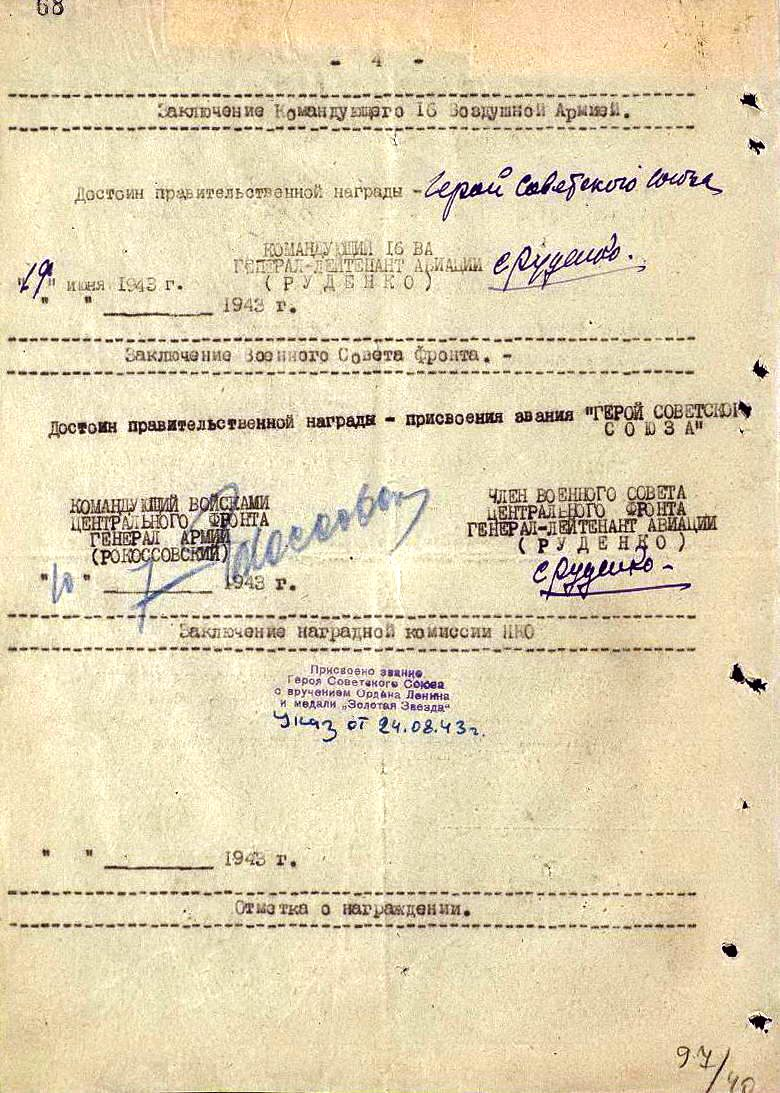 68
- 4 -
Заключение Командующего 16 Воздушной Армией.
Достоин правительственной награды - Герой Советского Союза
КОМАНДУЮЩИЙ 16 ВА
ГЕНЕРАЛ-ЛЕЙТЕНАНТ АВИАЦИИ С Руденко.
"19" июня 1943 г. (РУДЕНКО)
" " ________ 1943 г.
Заключение Военного Совета Фронта. -
Достоин правительственной награды - присвоения звания "ГЕРОЙ СОВЕТСКОГО
СОЮЗА"
КОМАНДУЮЩИЙ ВОЙСКАМИ
ЦЕНТРАЛЬНОГО ФРОНТА
ГЕНЕРАЛ АРМИИ
(РОКОССОВСКИЙ)
К Рокоссовск
"10" ________ 1943 г.
ЧЛЕН ВОЕННОГО СОВЕТА
ЦЕНТРАЛЬНОГО ФРОНТА
ГЕНЕРАЛ-ЛЕЙТЕНАНТ АВИАЦИИ
(РУДЕНКО)
С Руденко-
Заключение наградной комиссии НКО
Присвоено звание
Героя Советского Союза
с вручением Ордена Ленина
и медали „Золотая Звезда"
Указ от 24.08.43г.
" " ________ 1943 г.
Отметка о награждении.
97/40